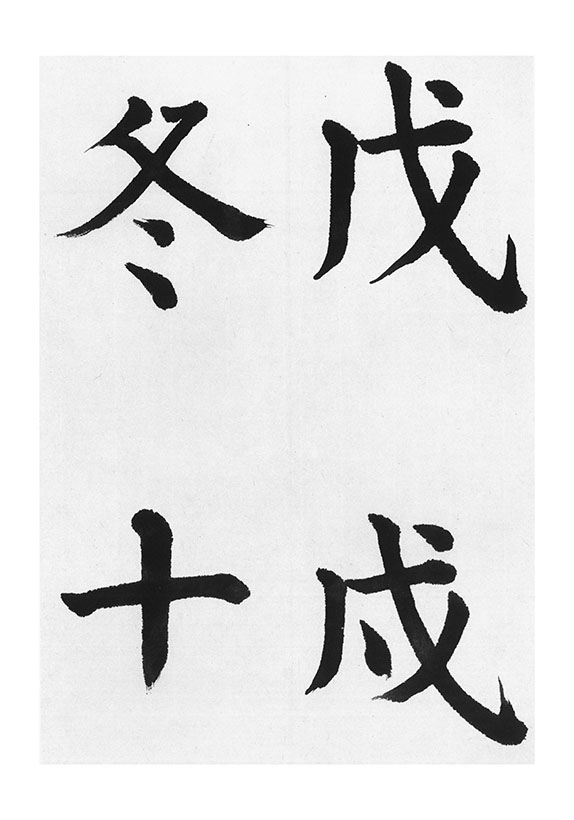 戊戌
冬十